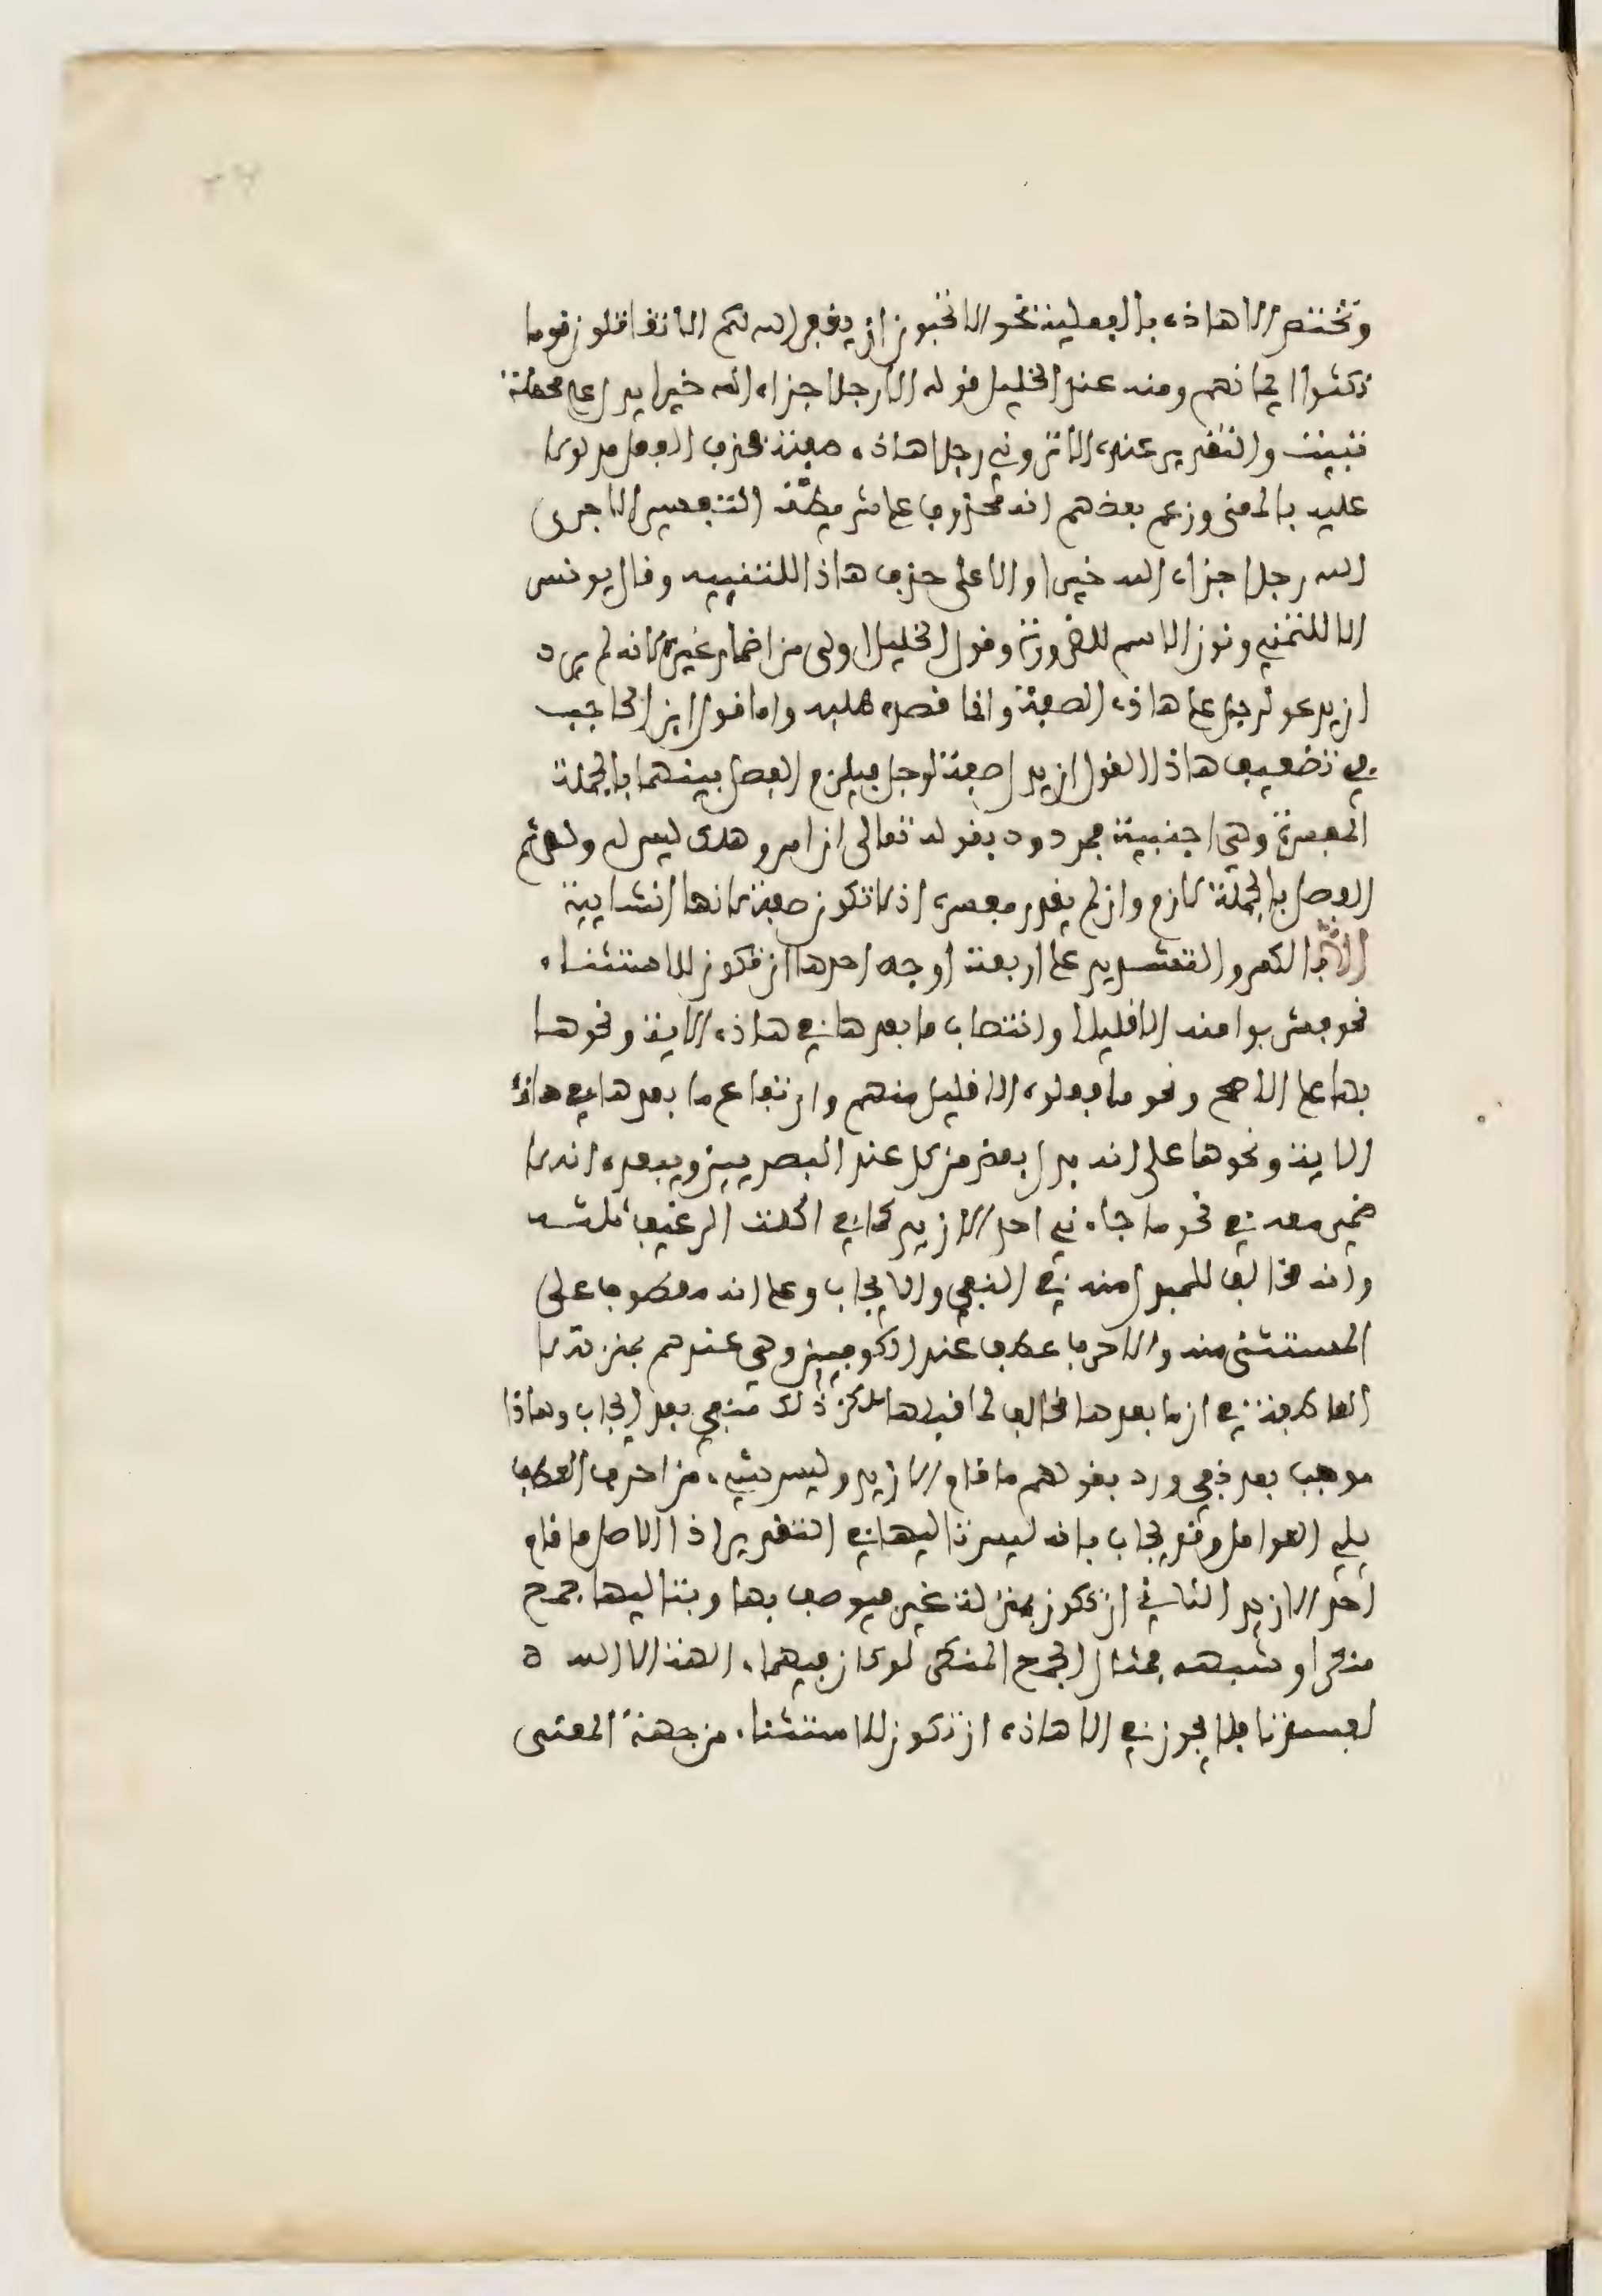 وتختص الا هاذه بالفعلية نحو الا تحبون ان يغفر الله لكم الا تقاتلون قوما
نكثوا ايمانهم ومنه عند الخليل قوله الا رجلا جزاه الله خيرا يدل على محصلة
تبيت والتقدير عنده الا تروني رجلا هاذه صفته فحذف الفعل مدلولا
عليه بالمعنى وزعم بعضهم انه محذوف على شريطة التفسير الا جزى
الله رجلا جزاه الله خيرا والا على حذف هاذا للتنبيه وقال يونس
الا للتمني ونون الاسم للضرورة وقول الخليل اولى من اضمار غيره لانه لم يرد
ان يدعو لرجل على هاذه الصفة وانما قصده طلبه واما قول ابن الحاجب
في تضعيف هاذا القول ان يدل صفة لرجل فيلزم الفصل بينهما بالجملة
المفسرة وهي اجنبية فمردود بقوله تعالى ان امرو هلك ليس له ولد ثم
الفصل بالجملة لازم وان لم يقدر مفسره اذ لا تكون صفة لانها انشايية
الا بالكسر والتشديد على اربعة اوجه احدها ان تكون للاستثناء
نحو فشربوا منه الا قليلا وانتصاب ما بعدها في هاذه الاية ونحوها
بها على الاصح ونحو ما فعلوه الا قليل منهم وارتفاع ما بعدها في هاذه
الاية ونحوها على انه بدل بعض من كل عند البصريين ويبعده انه لا
ضمير معه في نحو ما جاءني احد الا زيد كما في اكلت الرغيف ثلثه
وانه مخالف للمبدل منه في النفي والايجاب وعلى انه معطوف على
المستثنى منه والا حرف عطف عند الكوفيين وهي عندهم بمنزلة لا
العاطفة في ان ما بعدها مخالف لما قبلها لكن ذلك منفي بعد ايجاب وهاذا
موجب بعد نفي ورد بقولهم ما قام الا زيد وليس شيء من احرف العطف
يلي العوامل وقد يجاب بانه ليس تاليها في التقدير اذ الاصل ما قام
احد الا زيد الثاني ان تكون بمنزلة غير فيوصف بها وبتاليها جمع
منكر او شبهه فمثال الجمع المنكر لو كان فيهما ءالهة الا الله ه
لفسدتا فلا يجوز في الا هاذه ان تكون للاستثناء من جهة المعنى